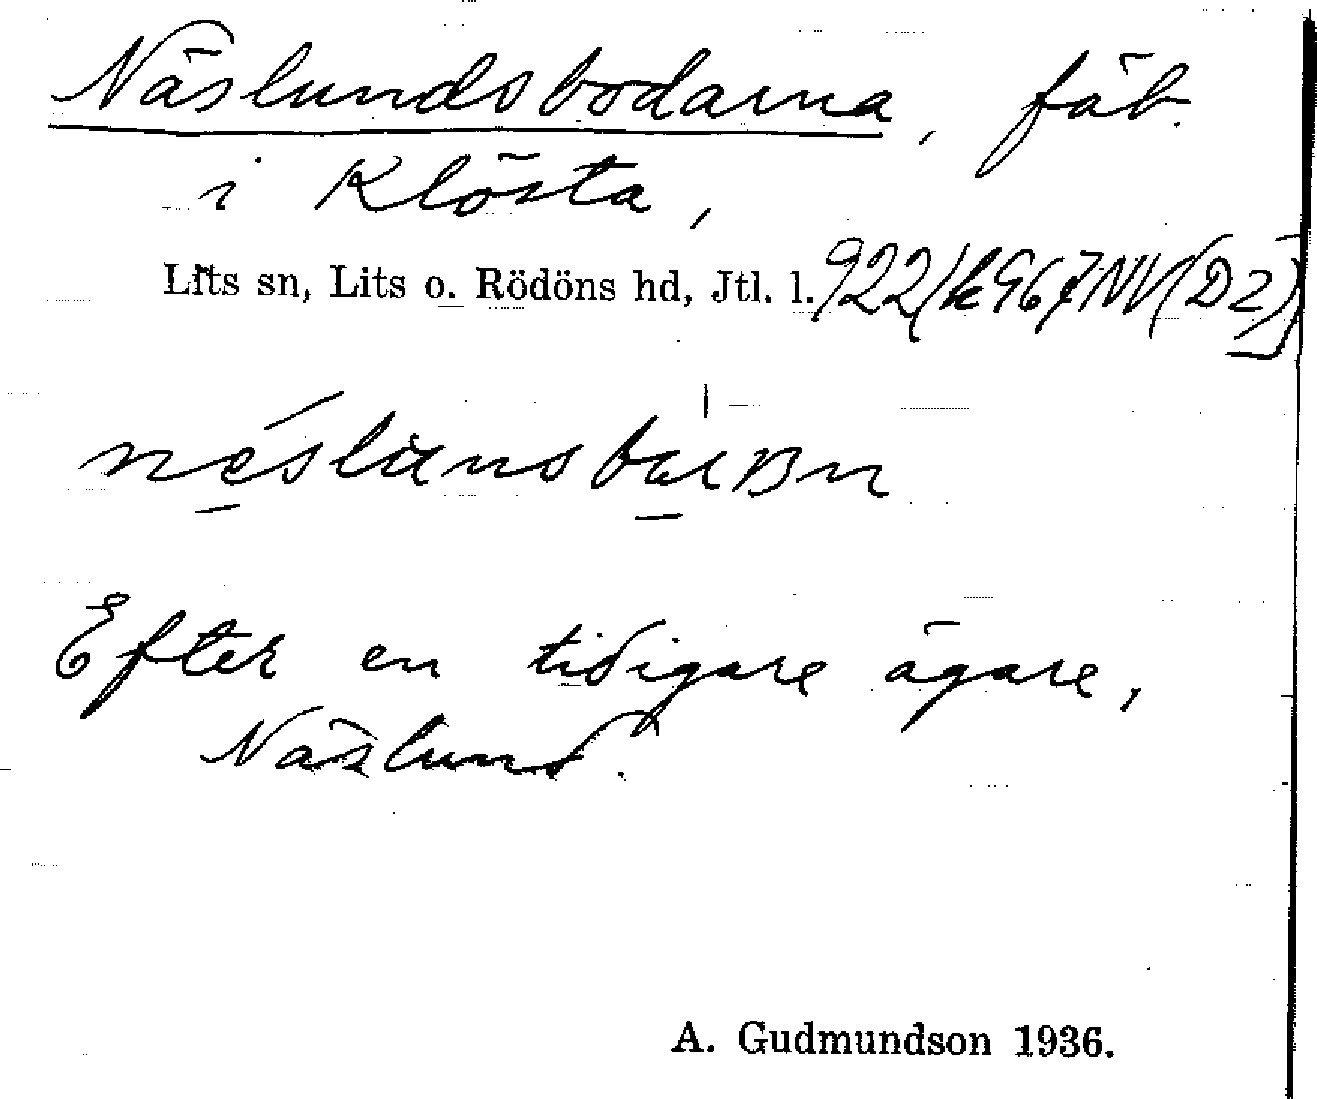 Näslundsbodarna, fäb.
i Klösta,
Lits sn, Lits o. Rödöns hd, Jtl. l.
Efter en tidigare ägare,
Näslund.
A. Gudmundson 1936.